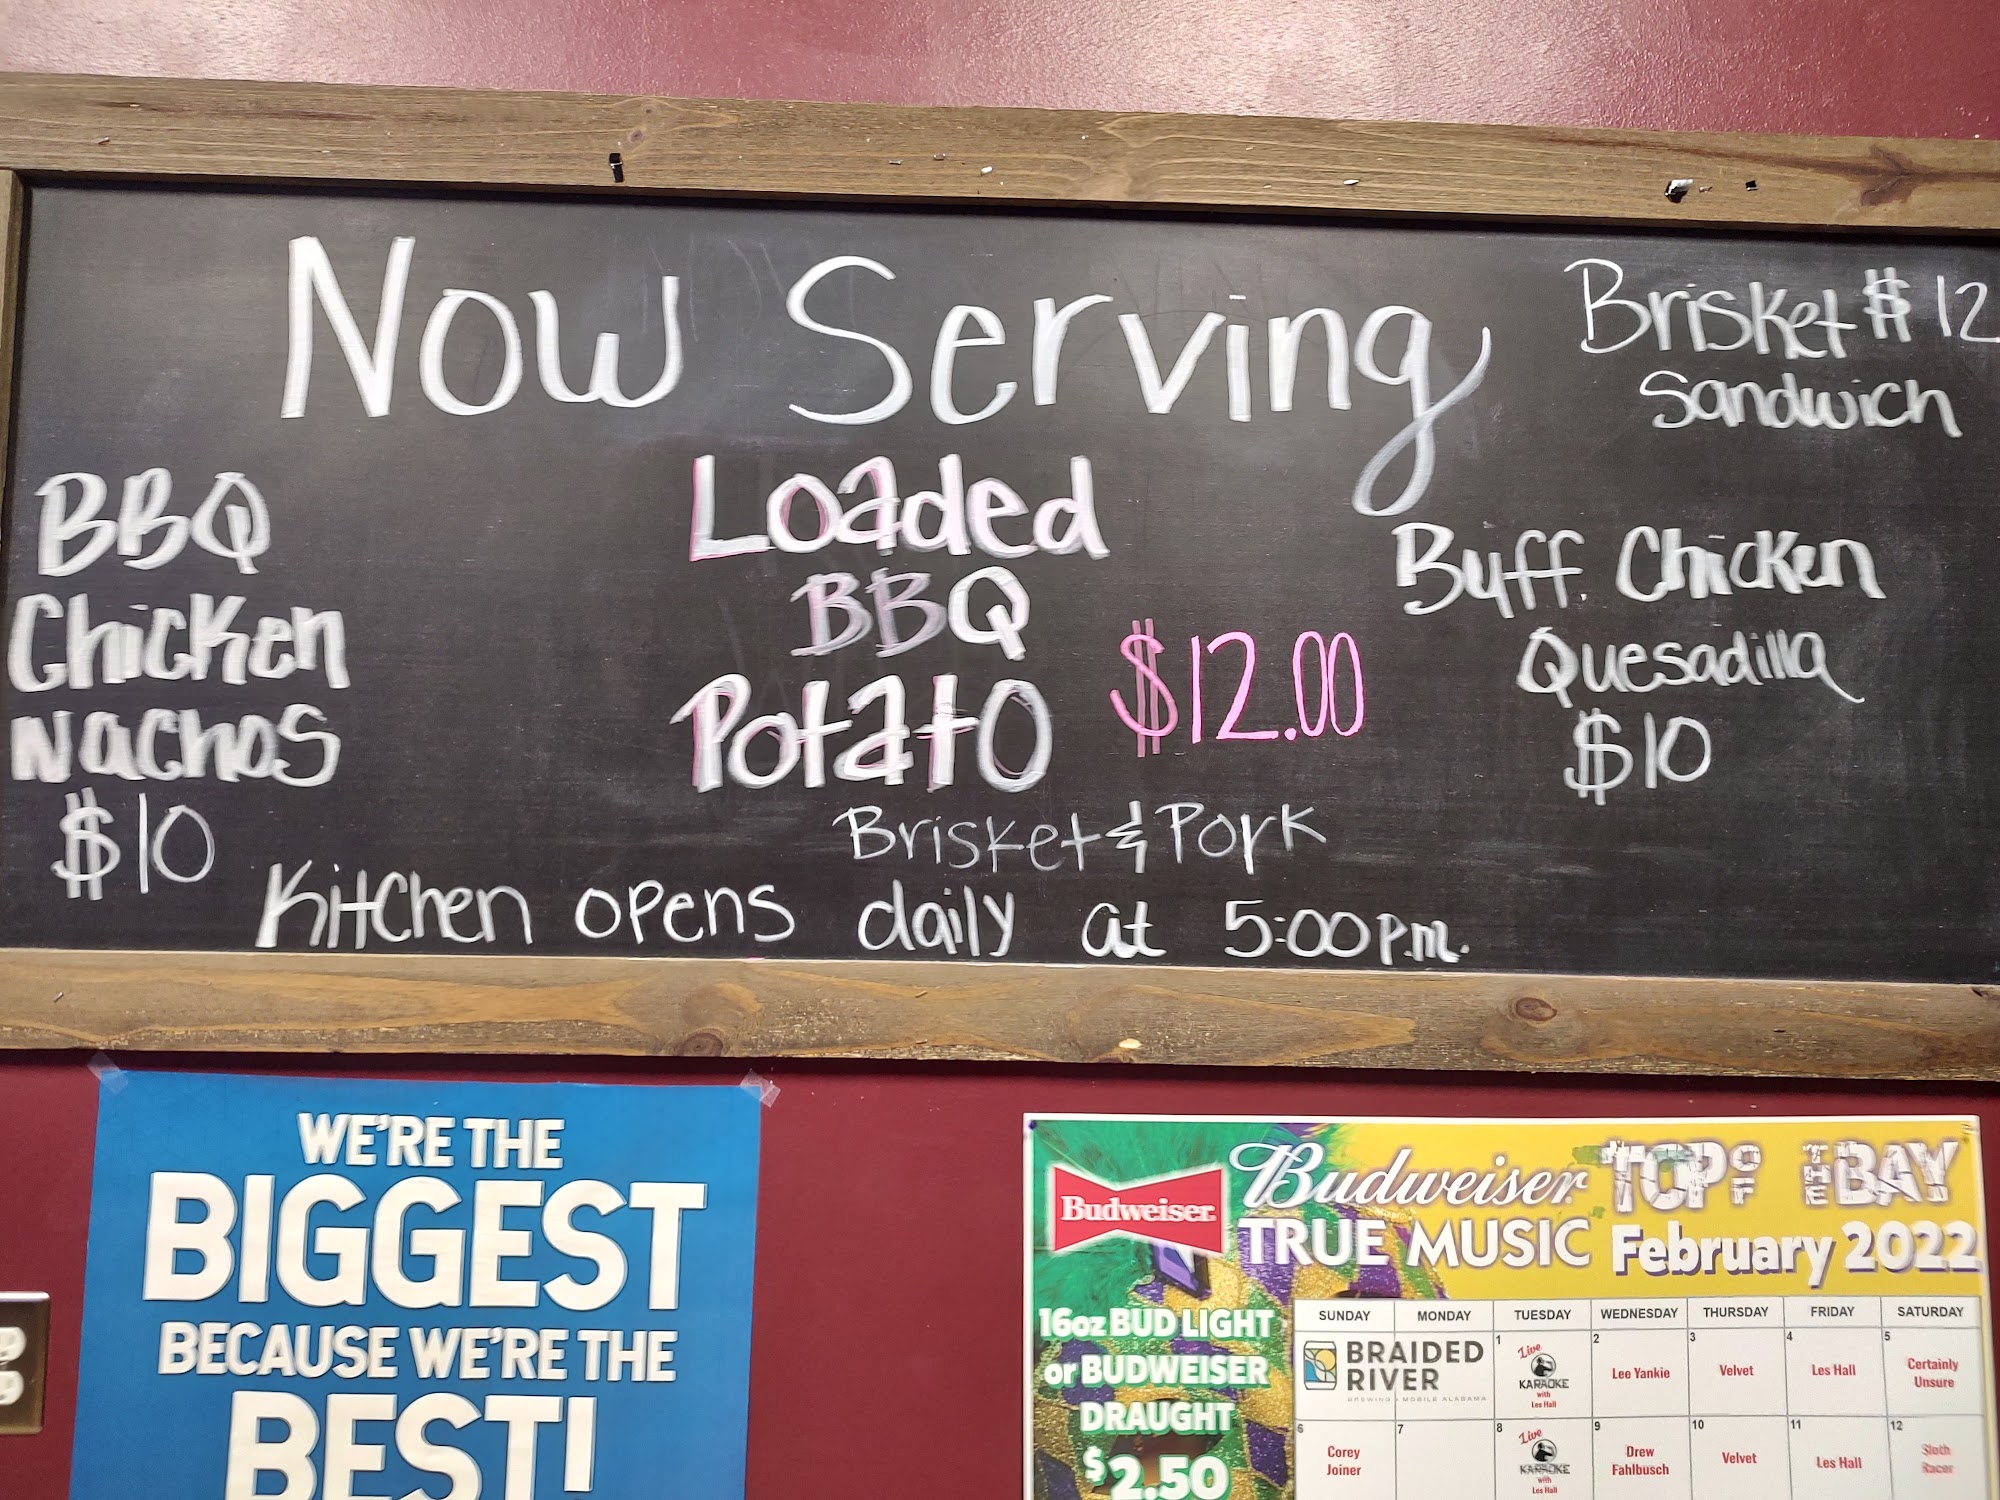 Now Serving
Brisket $12
Sandwich
BBQ
Chicken
Nachos
$10
Loaded
BBQ
Potato $12.00
Brisket & Pork
Buff. Chicken
Quesadilla
$10
Kitchen opens daily at 5:00 p.m.
WE'RE THE
BIGGEST
BECAUSE WE'RE THE
BEST!
Budweiser
Budweiser TOP OF THE BAY
TRUE MUSIC February 2022
16oz BUD LIGHT
or BUDWEISER
DRAUGHT
$2.50
SUNDAY MONDAY TUESDAY WEDNESDAY THURSDAY FRIDAY SATURDAY
BRAIDED
RIVER
BREWING MOBILE ALABAMA
1
Live
KARAOKE
with
Les Hall
2
Lee Yankie
3
Velvet
4
Les Hall
5
Certainly
Unsure
6
Corey
Joiner
7
8
Live
KARAOKE
with
Les Hall
9
Drew
Fahlbusch
10
Velvet
11
Les Hall
12
Sloth
Racer